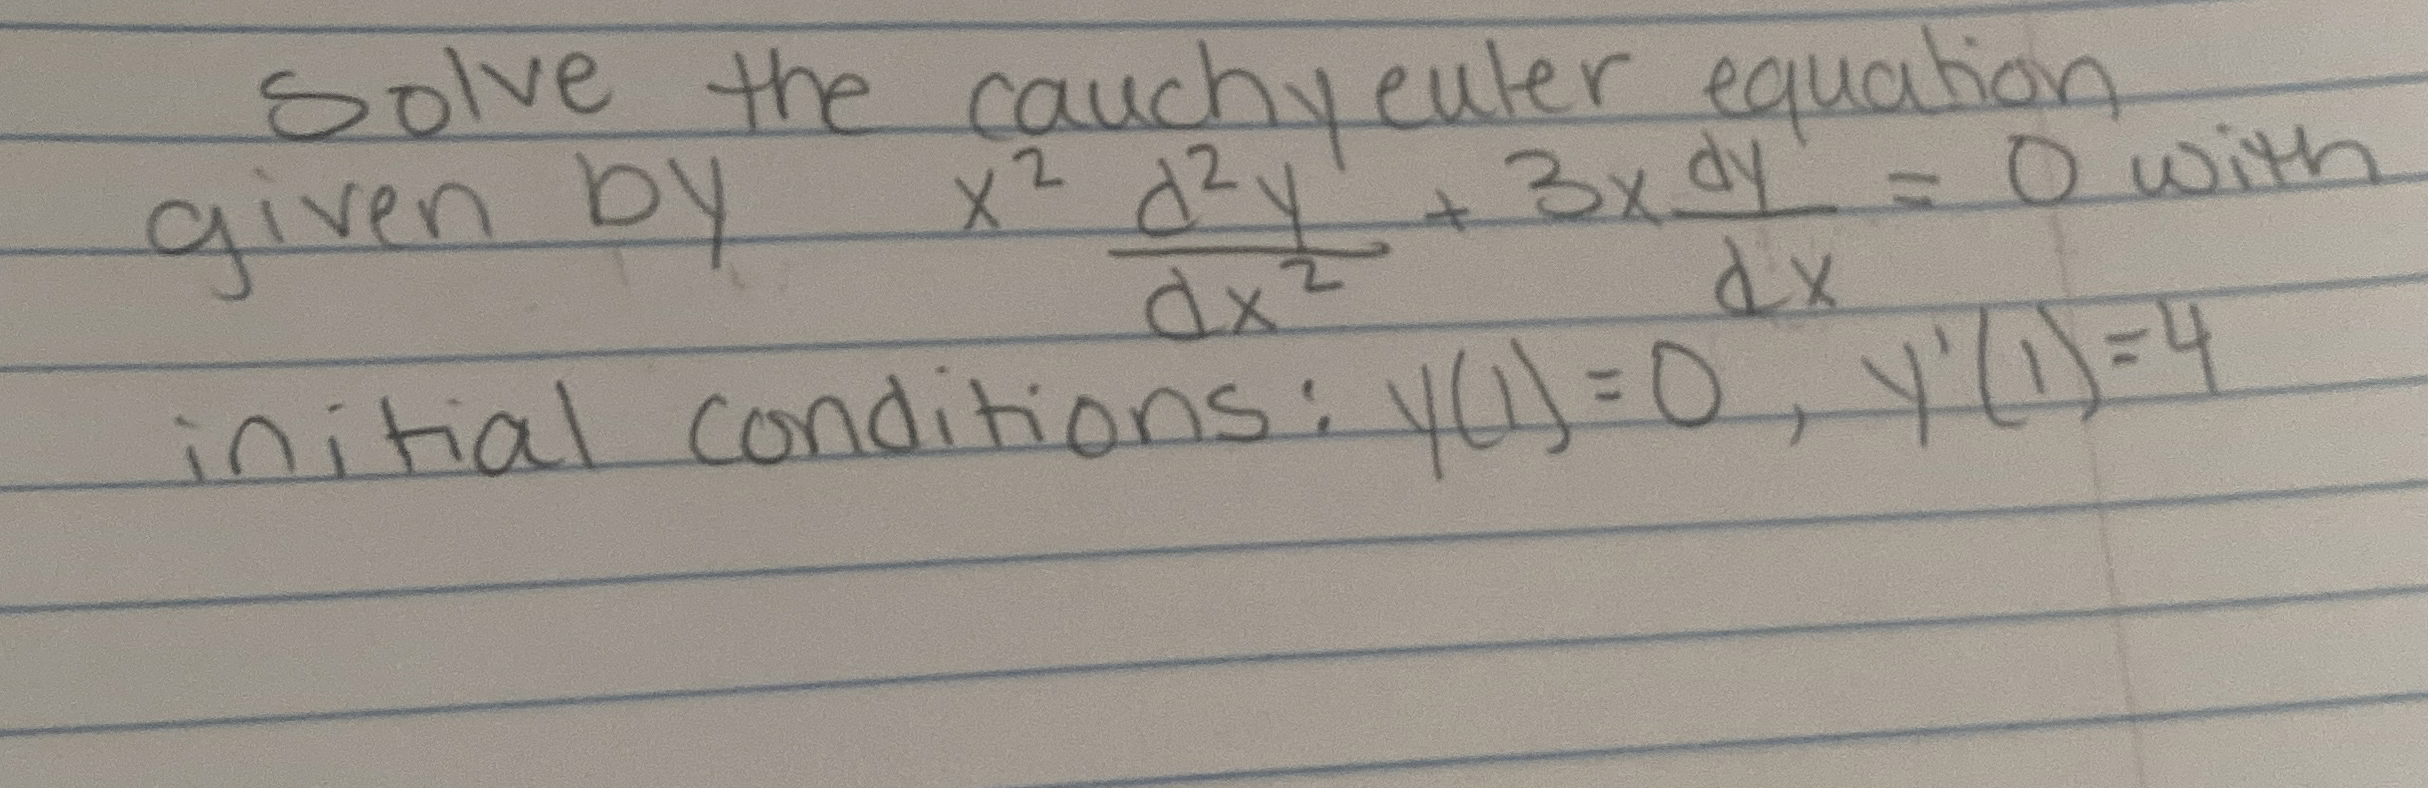 Solve the cauchy euler equation
given by x² d²y/dx² + 3x dy/dx = 0 with
initial conditions: y(1)=0, y'(1)=4